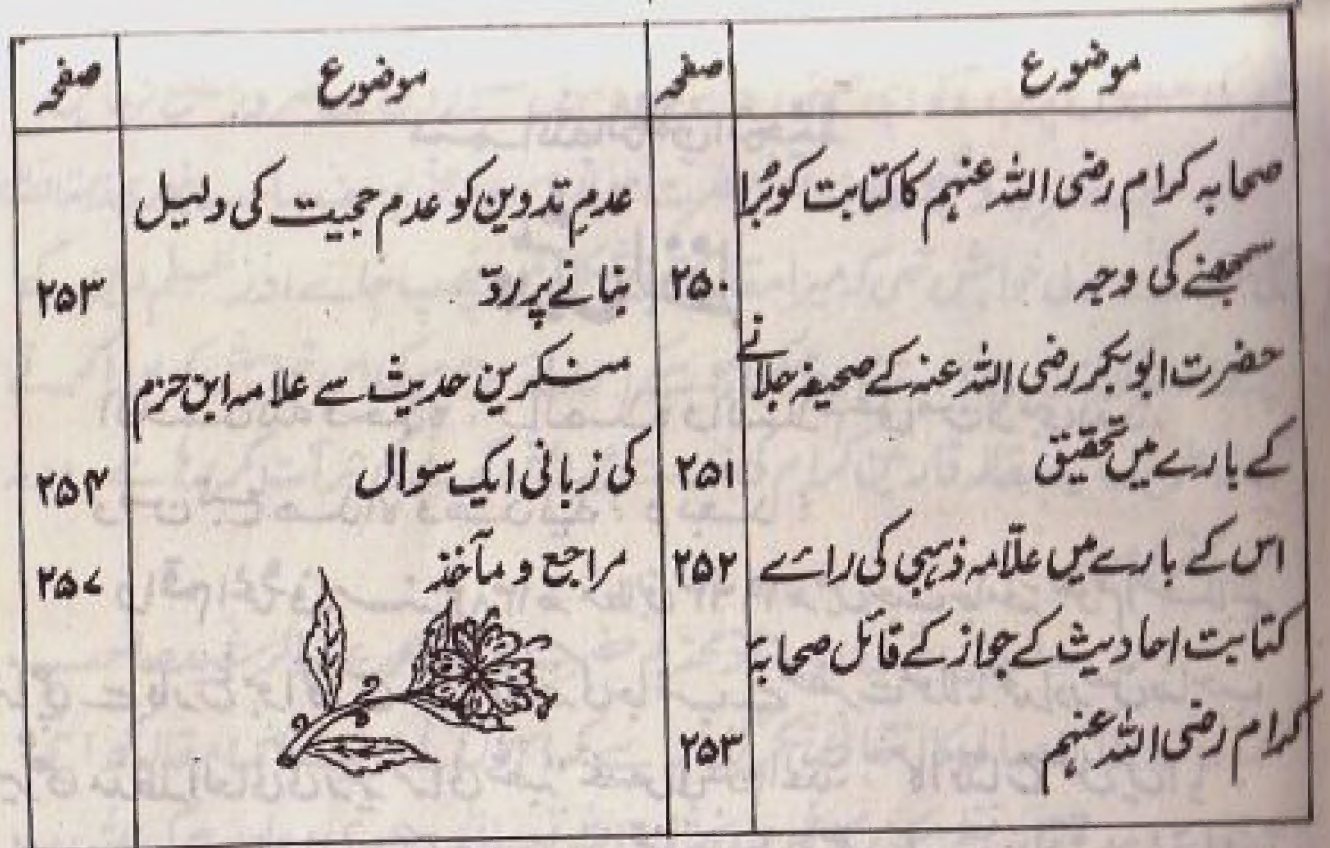 موضوع صفحہ
صحابہ کرام رضی اللہ عنہم کا کتابت کو بُرا
سمجھنے کی وجہ ۲۵۰
حضرت ابوبکر رضی اللہ عنہ کے صحیفہ جلانے
کے بارے میں تحقیق ۲۵۱
اس کے بارے میں علّامہ ذہبی کی رائے ۲۵۲
کتابت احادیث کے جواز کے قائل صحابہ
کرام رضی اللہ عنہم ۲۵۳
موضوع صفحہ
عدمِ تدوین کو عدم حجیت کی دلیل
بنانے پر ردّ ۲۵۳
منکرین حدیث سے علامہ ابن حزم
کی زبانی ایک سوال ۲۵۴
مراجع و مآخذ ۲۵۷